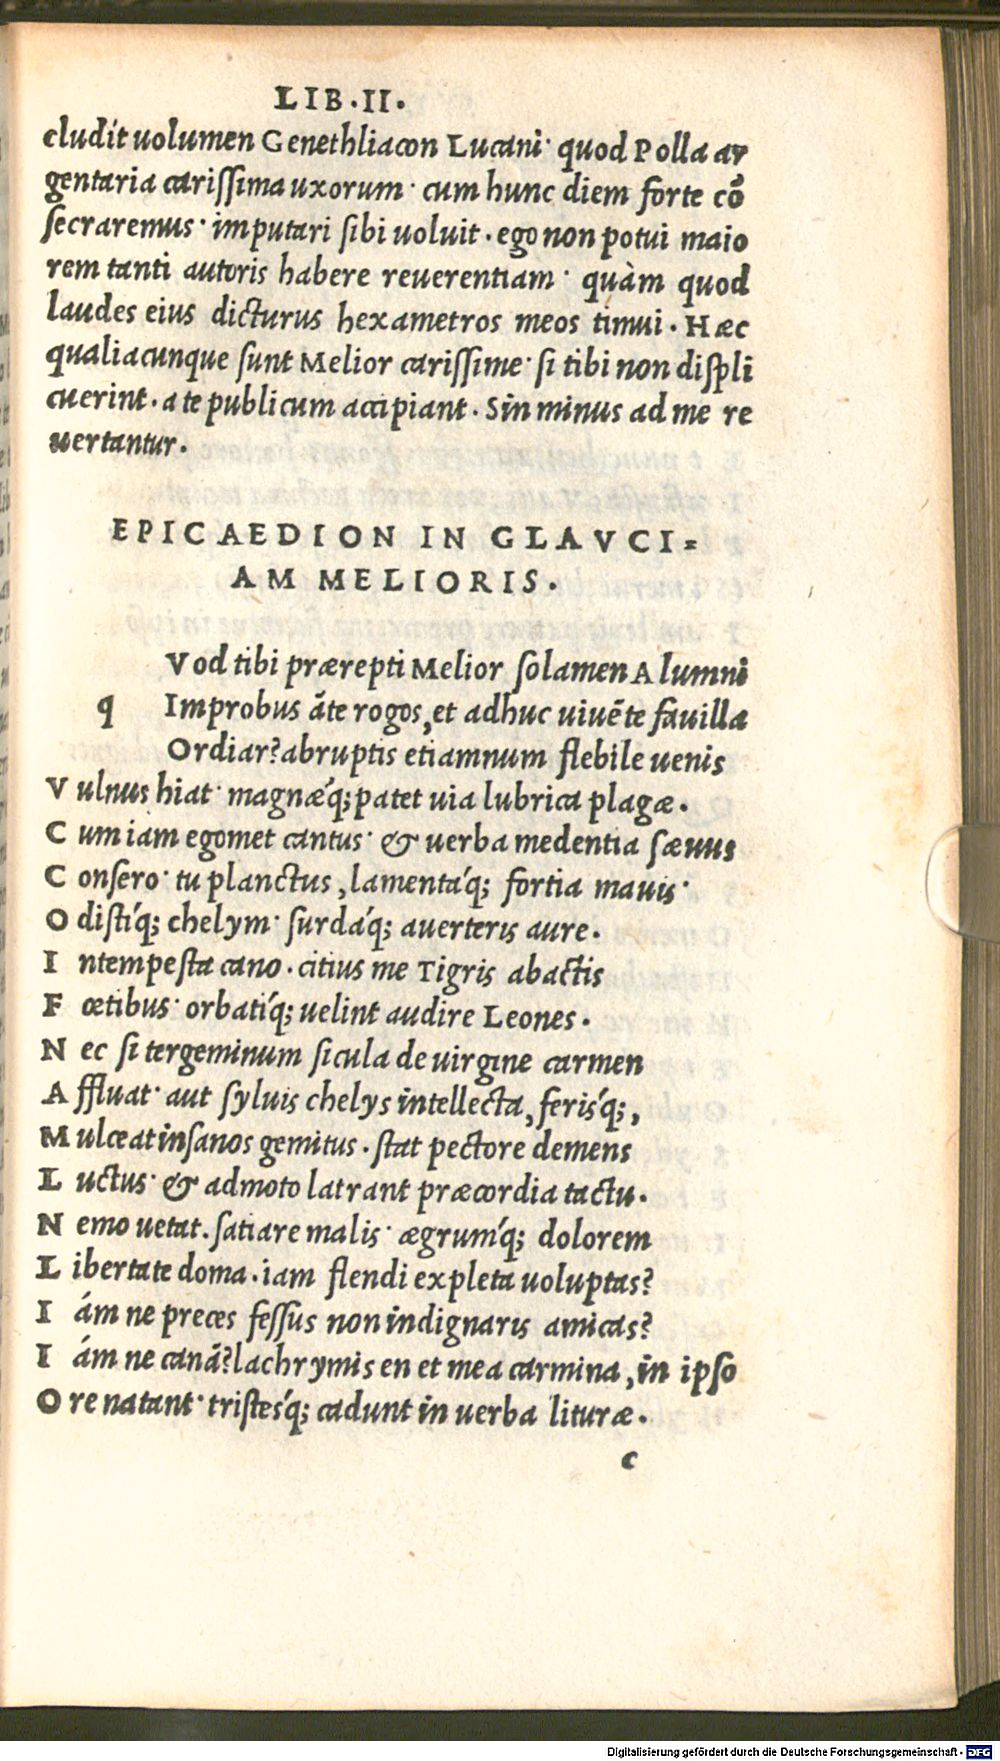 LIB.II.
cludit uolumen Genethliacon Lucani· quod Polla ar
gentaria carissima uxorum· cum hunc diem forte cõ
secraremus· imputari sibi uoluit. ego non potui maio
rem tanti autoris habere reuerentiam· quàm quod
laudes eius dicturus hexametros meos timui. Hæc
qualiacunque sunt Melior carissime· si tibi non displi
cuerint. a te publicum accipiant. Sin minus ad me re
uertantur.
EPICAEDION IN GLAVCI=
AM MELIORIS.
Vod tibi prærepti Melior solamen Alumni
q Improbus ãte rogos, et adhuc uiuẽte fauilla
Ordiar? abruptis etiamnum flebile uenis
V ulnus hiat· magnæq́; patet uia lubrica plagæ.
C um iam egomet cantus· & uerba medentia sæuus
C onsero· tu planctus, lamentáq́; fortia mauis·
O distíq́; chelym· surdáq́; auerteris aure.
I ntempesta cano. citius me Tigris abactis
F œtibus· orbatíq́; uelint audire Leones.
N ec si tergeminum sicula de uirgine carmen
A ffluat· aut syluis chelys intellecta, ferisq́;,
M ulceat insanos gemitus. stat pectore demens
L uctus· & admoto latrant præcordia tactu.
N emo uetat. satiare malis· ægrumq́; dolorem
L ibertate doma. iam flendi expleta uoluptas?
I ám ne preces fessus non indignaris amicas?
I ám ne canã? lachrymis en et mea carmina, in ipso
O re natant· tristesq́; cadunt in uerba lituræ.
c
Digitalisierung gefördert durch die Deutsche Forschungsgemeinschaft - DFG